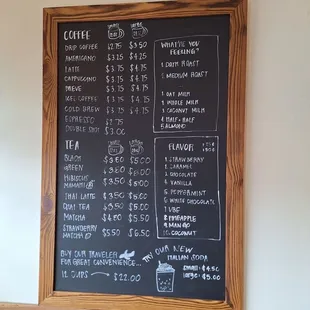 COFFEE
DRIP COFFEE $2.75 $3.50
AMERICANO $3.25 $4.25
LATTE $3.75 $4.75
CAPPUCCINO $3.75 $4.75
BREVE $3.75 $4.75
ICED COFFEE $3.75 $4.75
COLD BREW $3.75 $4.25
ESPRESSO
DOUBLE SHOT $3.00
TEA
BLACK $3.50 $5.00
GREEN $3.50 $5.00
HIBISCUS
MIAMI $3.50 $5.00
THAI LATTE $3.50 $5.00
CHAI TEA $3.50 $5.50
MATCHA $4.50 $5.50
STRAWBERRY
MATCHA $5.50 $6.50
BUY OUR TRAVELER
FOR GREAT CONVENIENCE...
12 CUPS $22.00
WHAT'S YOU
FEELING?
DARK ROAST
MEDIUM ROAST
OAT MILK
WHOLE MILK
COCONUT MILK
HALF & HALF
ALMOND
FLAVOR
STRAWBERRY
CARAMEL
CHOCOLATE
VANILLA
PEPPERMINT
WHITE CHOCOLATE
UBE
PINEAPPLE
MANGO
COCONUT
TRY OUR NEW
ITALIAN SODA
SMALL: $4.50
LARGE: $5.00